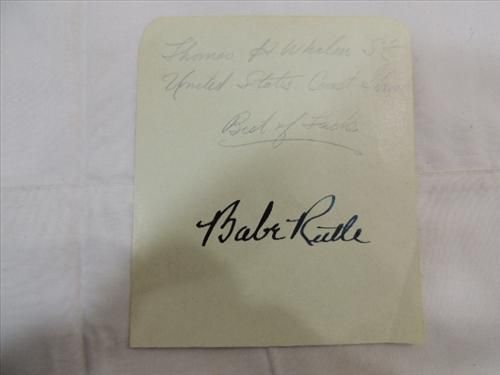 Thomas H Whalen
United States Coast
Best of Luck
Babe Ruth